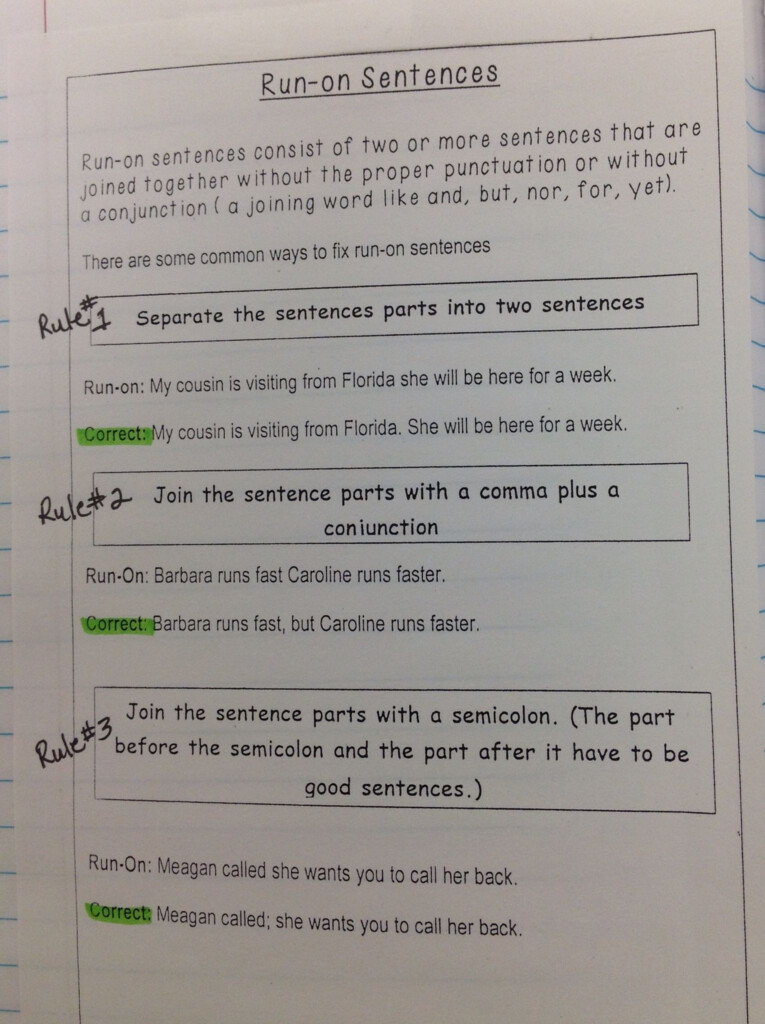 Run-on Sentences
Run-on sentences consist of two or more sentences that are
joined together without the proper punctuation or without
a conjunction ( a joining word like and, but, nor, for, yet).
There are some common ways to fix run-on sentences
Rule #1
Separate the sentences parts into two sentences
Run-on: My cousin is visiting from Florida she will be here for a week.
Correct: My cousin is visiting from Florida. She will be here for a week.
Rule #2
Join the sentence parts with a comma plus a
conjunction
Run-On: Barbara runs fast Caroline runs faster.
Correct: Barbara runs fast, but Caroline runs faster.
Rule #3
Join the sentence parts with a semicolon. (The part
before the semicolon and the part after it have to be
good sentences.)
Run-On: Meagan called she wants you to call her back.
Correct: Meagan called; she wants you to call her back.